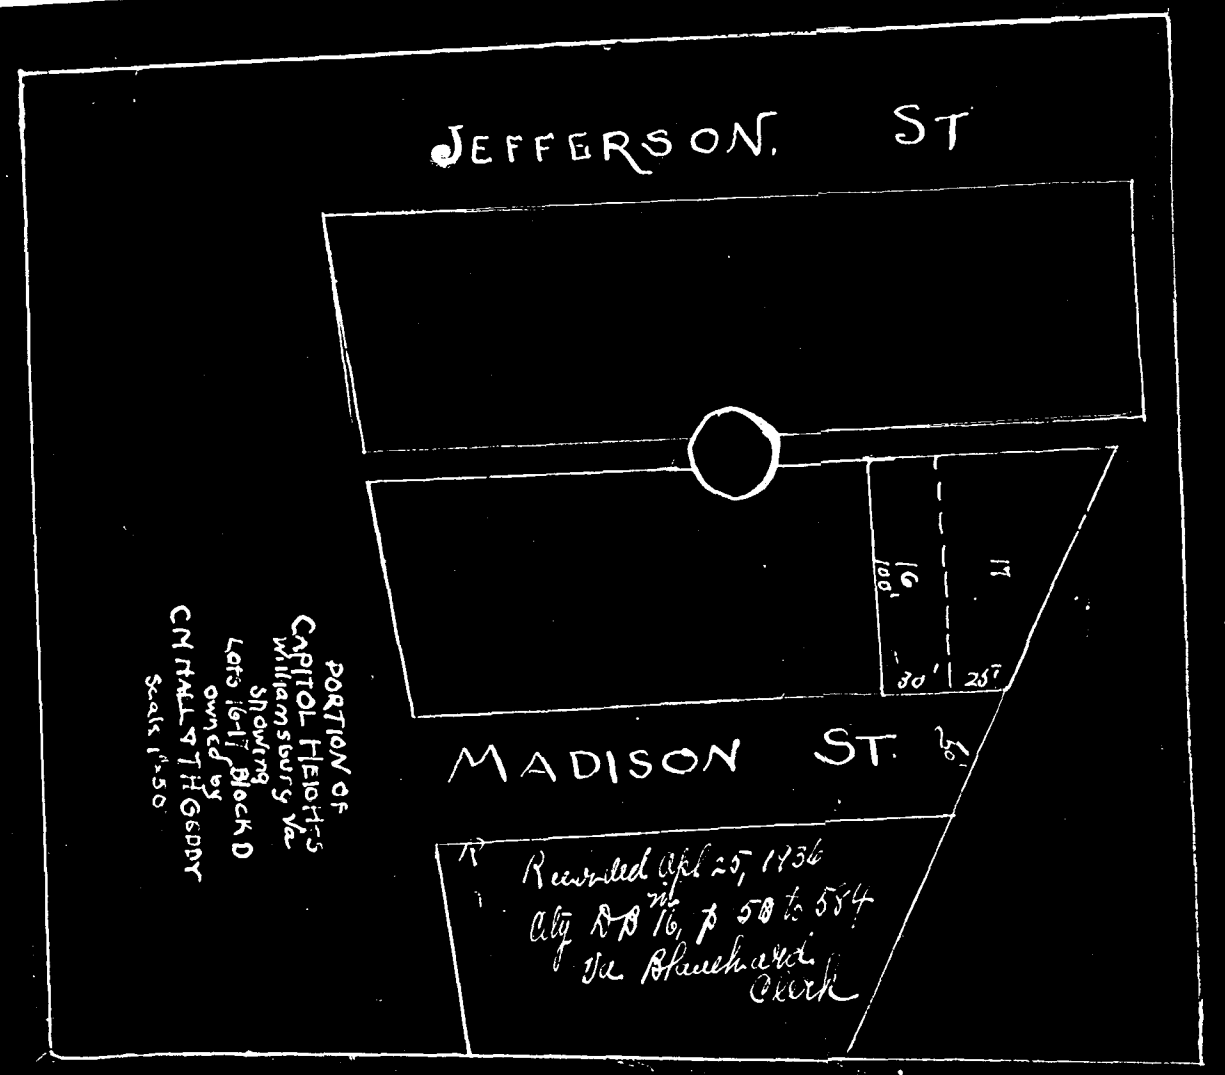 JEFFERSON. ST
16
100'
17
30'
25'
MADISON ST.
50'
PORTION OF
CAPITOL HEIGHTS
Williamsburg Va
Showing
Lots 16-17, Block D
owned by
CM HALL & TH GEDDY
Scale 1"=50'
Recorded Apl 25, 1936
in
City DB 16, p to 584
Va Blanchard
Clerk